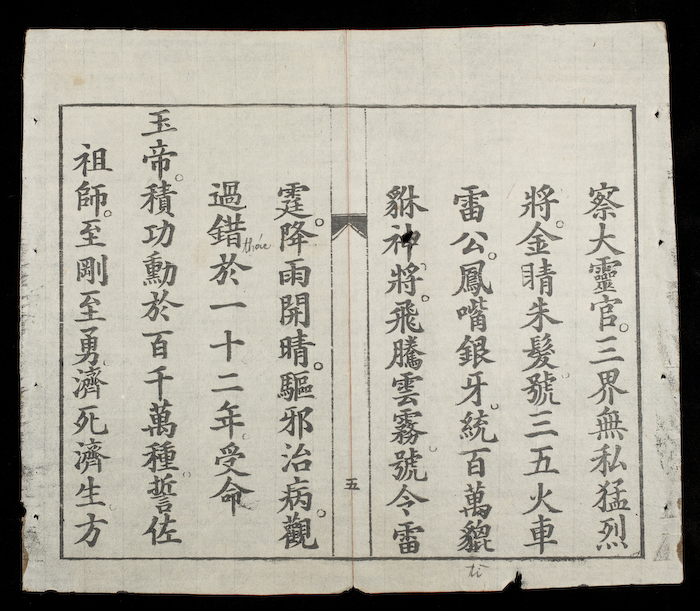 察大靈官。三界無私猛烈
將。金睛朱髮號三五火車
雷公。鳳嘴銀牙。統百萬貔
tì
貅神將。飛騰雲霧。號令雷
五
霆。降雨開晴。驅邪治病。觀
過錯於一十二年。受命
thác
玉帝。積功勳於百千萬種。誓佐
祖師。至剛至勇。濟死濟生。方